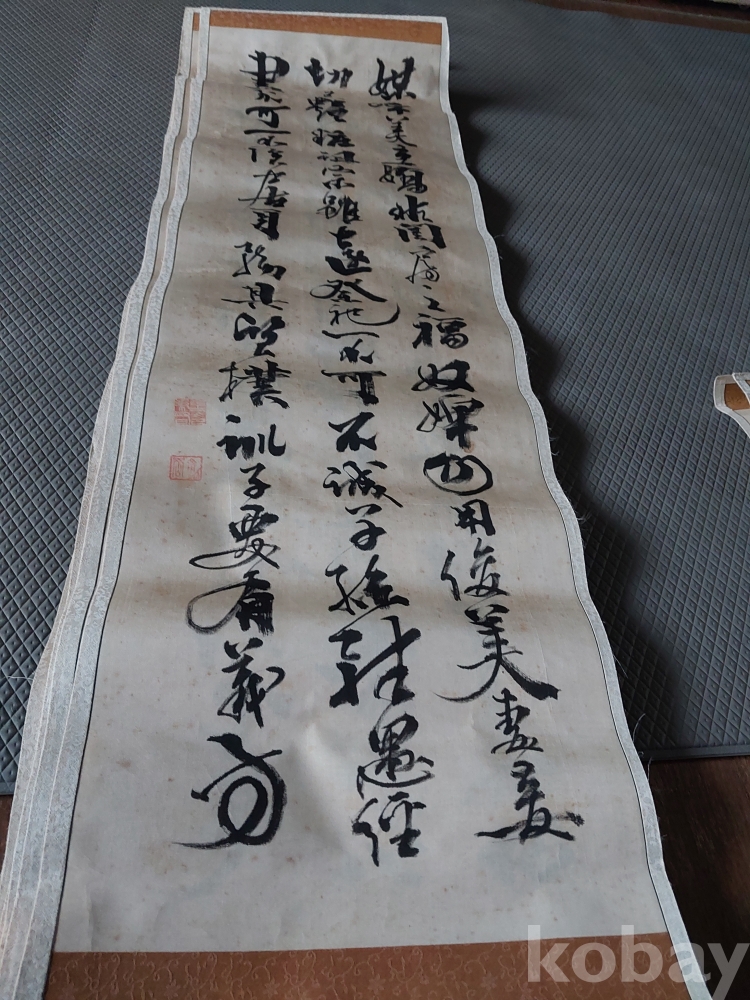 媒婢美妾嬌非閨房之福奴僕勿用俊美妻妾
切忌艷粧祖宗雖遠祭祀不可不誠子孫雖愚經
書不可不讀居身務期質樸訓子要有義方
kobay